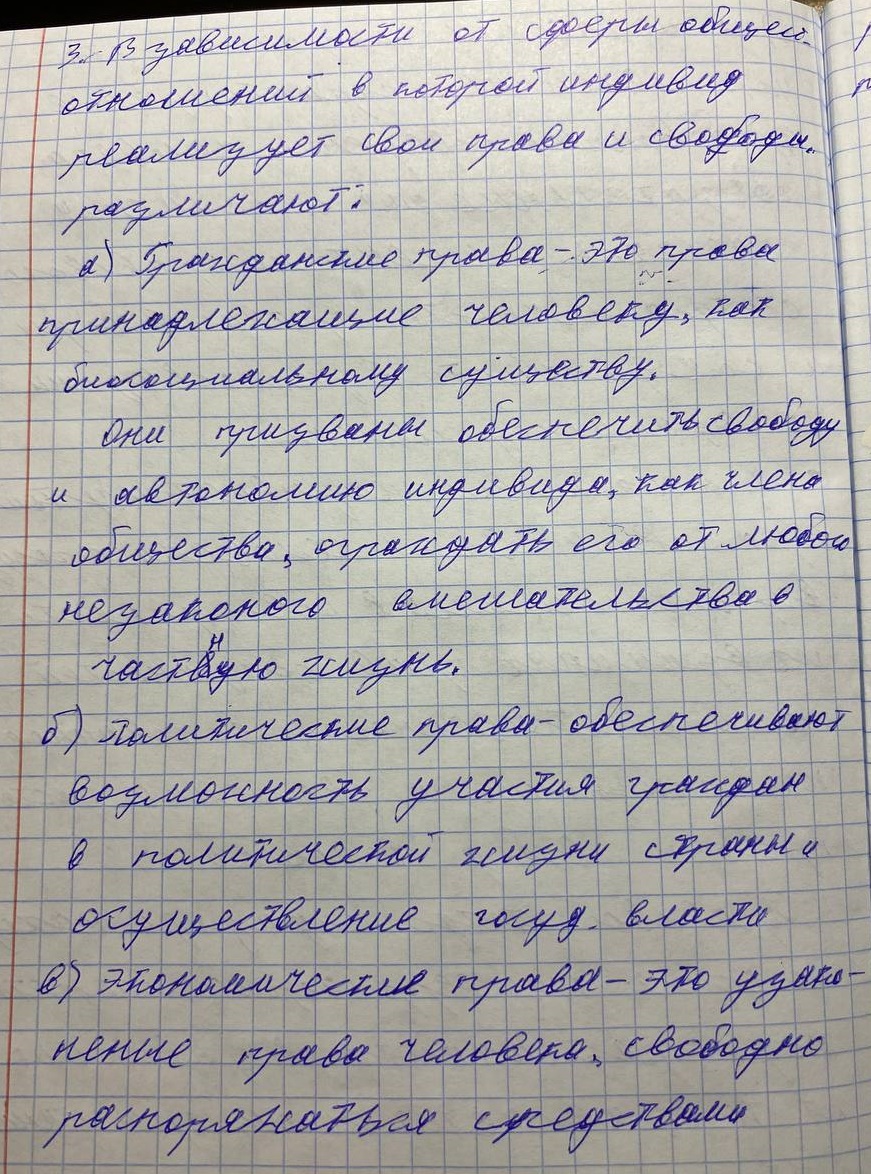 3. В зависимости от сферы общест.
отношений в которой индивид
реализует свои права и свободы.
различают:
а) Гражданские права - это права
принадлежащие человеку, как
биосоциальному существу.
Они призваны обеспечить свободу
и автономию индивида, как члена
общества, ограждать его от любого
незаконого вмешательства в
частную жизнь.
б) Политические права - обеспечивают
возможность участия граждан
в политической жизни страны и
осуществление госуд. власти
в) Экономические права - это узако-
нение права человека, свободно
распоряжаться средствами